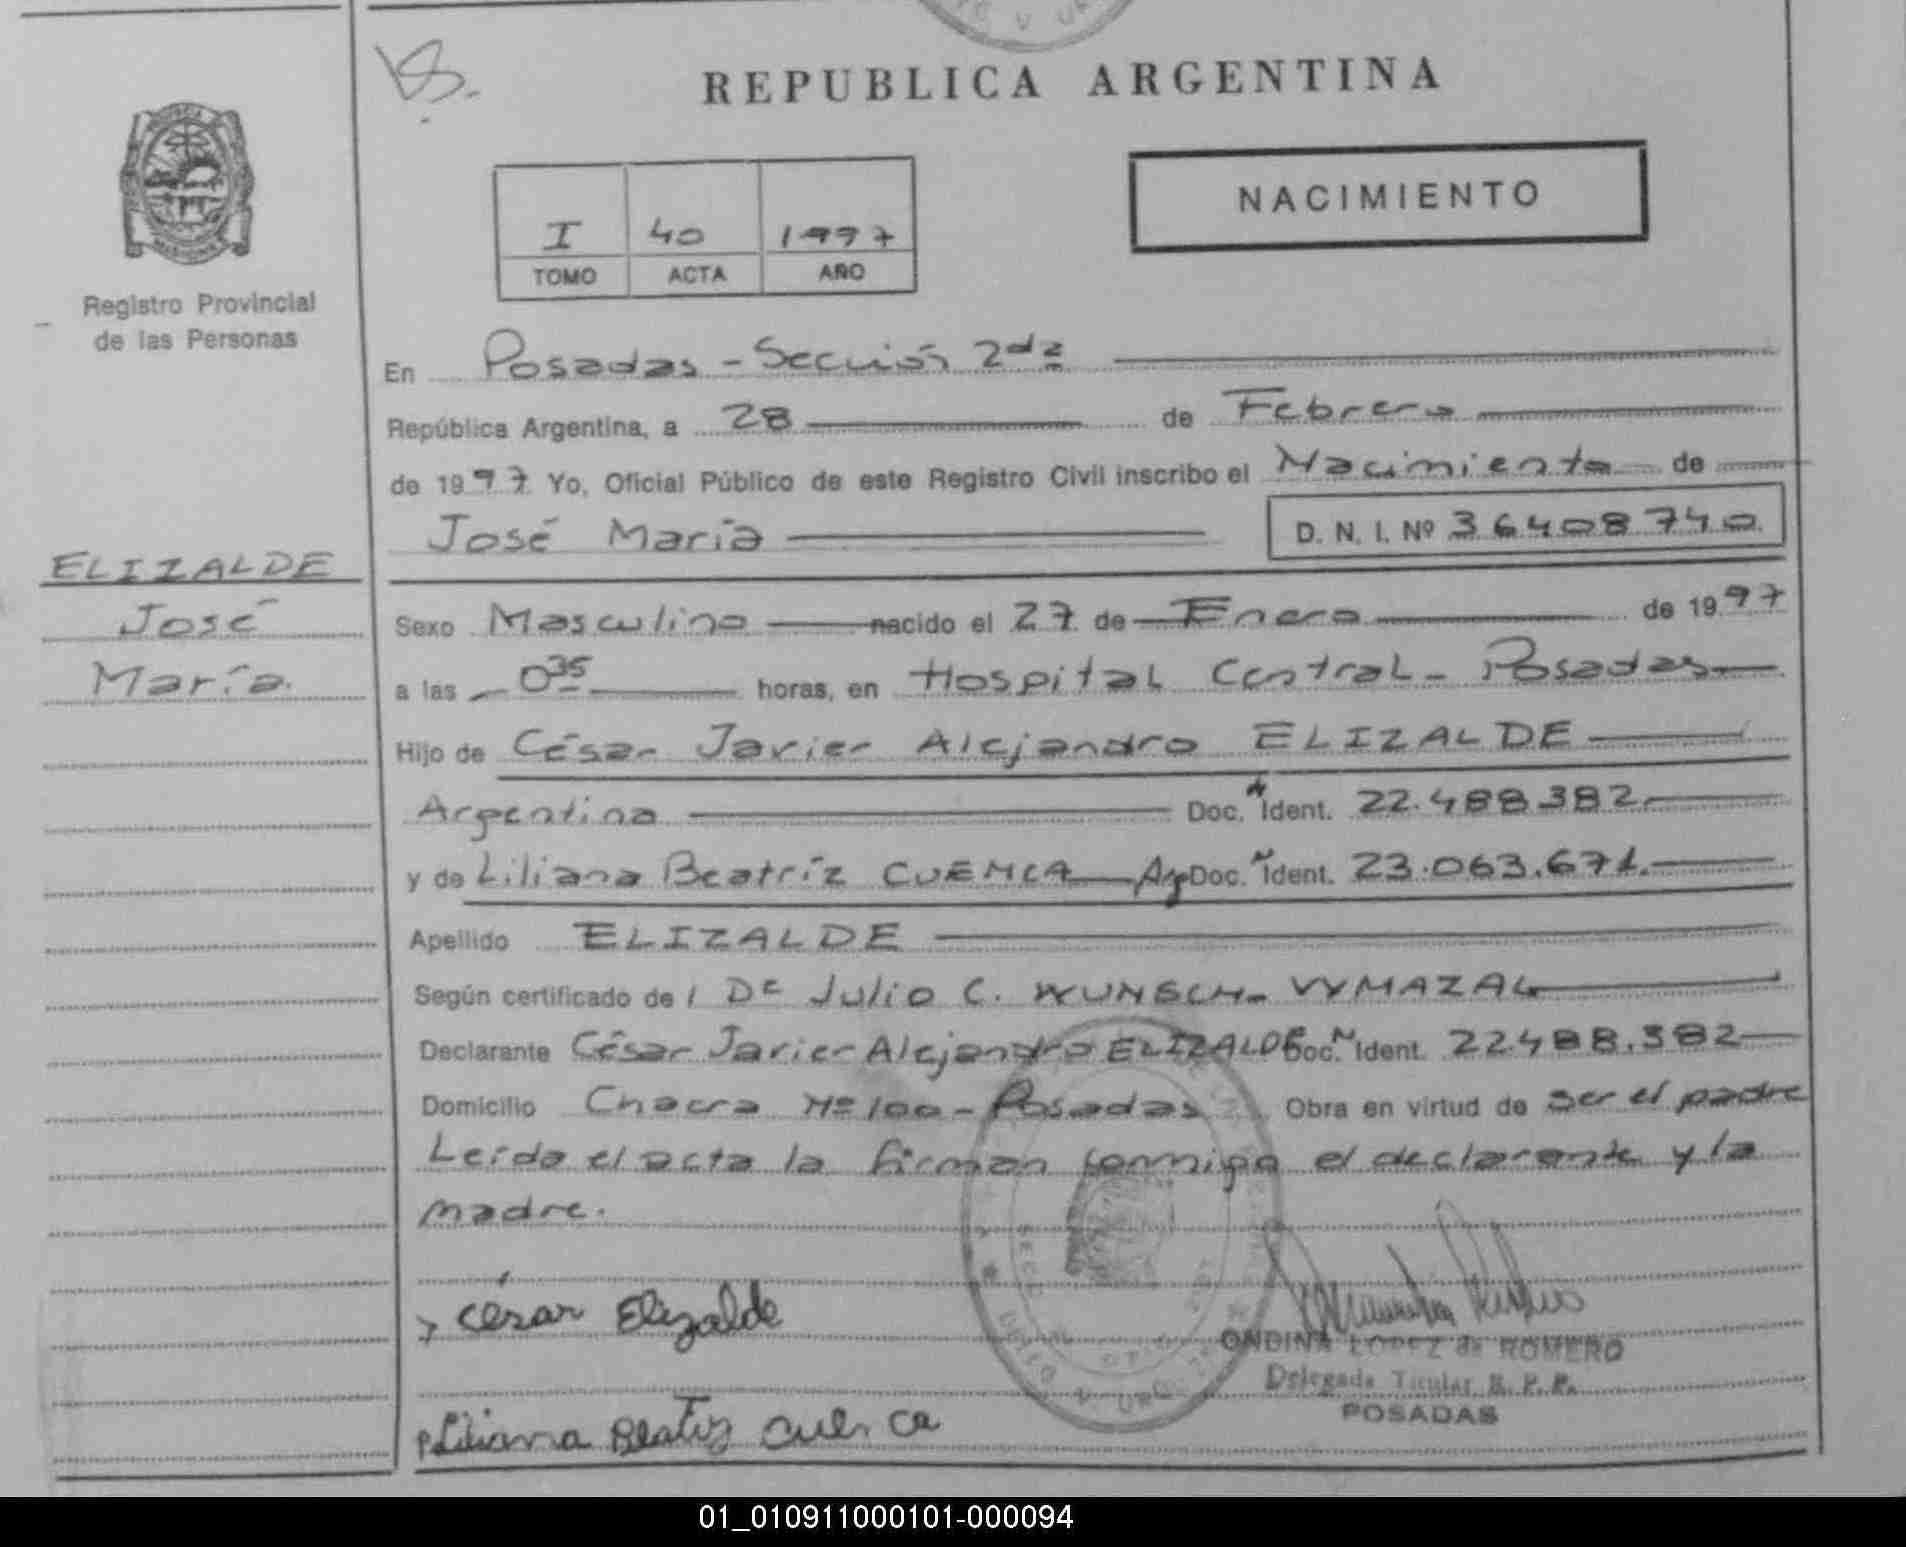 REPUBLICA ARGENTINA
NACIMIENTO
I 40 1997
TOMO ACTA AÑO
Registro Provincial
de las Personas
En Posadas - Sección 2da
República Argentina, a 28 de Febrero
de 1997 Yo, Oficial Público de este Registro Civil inscribo el Nacimiento de
José María D. N. I. Nº 36408740.
ELIZALDE
José
María.
Sexo Masculino nacido el 27 de Enero de 1997
a las 0 35 horas, en Hospital Central - Posadas
Hijo de César Javier Alejandro ELIZALDE
Argentino Doc. Ident. 22.488.382
y de Liliana Beatríz CUENCA Arg Doc. Ident. 23.063.671.
Apellido ELIZALDE
Según certificado de Dr Julio C. WUNSCH - VYMAZAL
Declarante César Javier Alejandro ELIZALDE Doc. Ident. 22.488.382
Domicilio Chacra Nº 100 - Posadas Obra en virtud de ser el padre
Leída el acta la firman conmigo el declarante y la
madre.
César Elizalde
ONDINA LOPEZ de ROMERO
Delegada Titular R. P. P.
POSADAS
Liliana Beatriz Cuenca
01_010911000101-000094